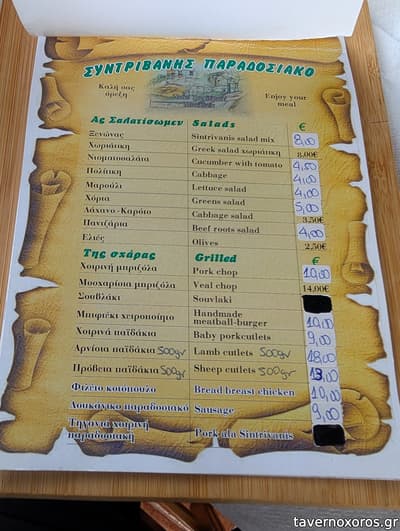 ΣΥΝΤΡΙΒΑΝΗΣ ΠΑΡΑΔΟΣΙΑΚΟ
Καλή σας όρεξη
Enjoy your meal
Ας Σαλατίσωμεν Salads €
Ξενώνας Sintrivanis salad mix 8,00
Χωριάτικη Greek salad χωριάτικη 8,00€
Ντοματοσαλάτα Cucumber with tomato 4,50
Πολίτικη Cabbage 4,00
Μαρούλι Lettuce salad 4,00
Χόρτα Greens salad 5,00
Λάχανο -Καρότο Cabbage salad 3,50€
Παντζάρια Beef roots salad 4,00
Ελιές Olives 2,50€
Της σχάρας Grilled €
Χοιρινή μπριζόλα Pork chop 10,00
Μοσχαρίσια μπριζόλα Veal chop 14,00€
Σουβλάκι Souvlaki
Μπιφτέκι χειροποίητο Handmade meatball-burger 10,00
Χοιρινά παϊδάκια Baby porkcutlets 9,00
Αρνίσια παϊδάκια 500gr Lamb cutlets 500gr 18,00
Πρόβεια παϊδάκια 500gr Sheep cutlets 500gr 13,00
Φιλέτο κοτόπουλο Bread breast chicken 10,00
Λουκάνικο παραδοσιακό Sausage 9,00
Τηγανιά χοιρινή παραδοσιακή Pork ala Sintrivanis
tavernoxoros.gr